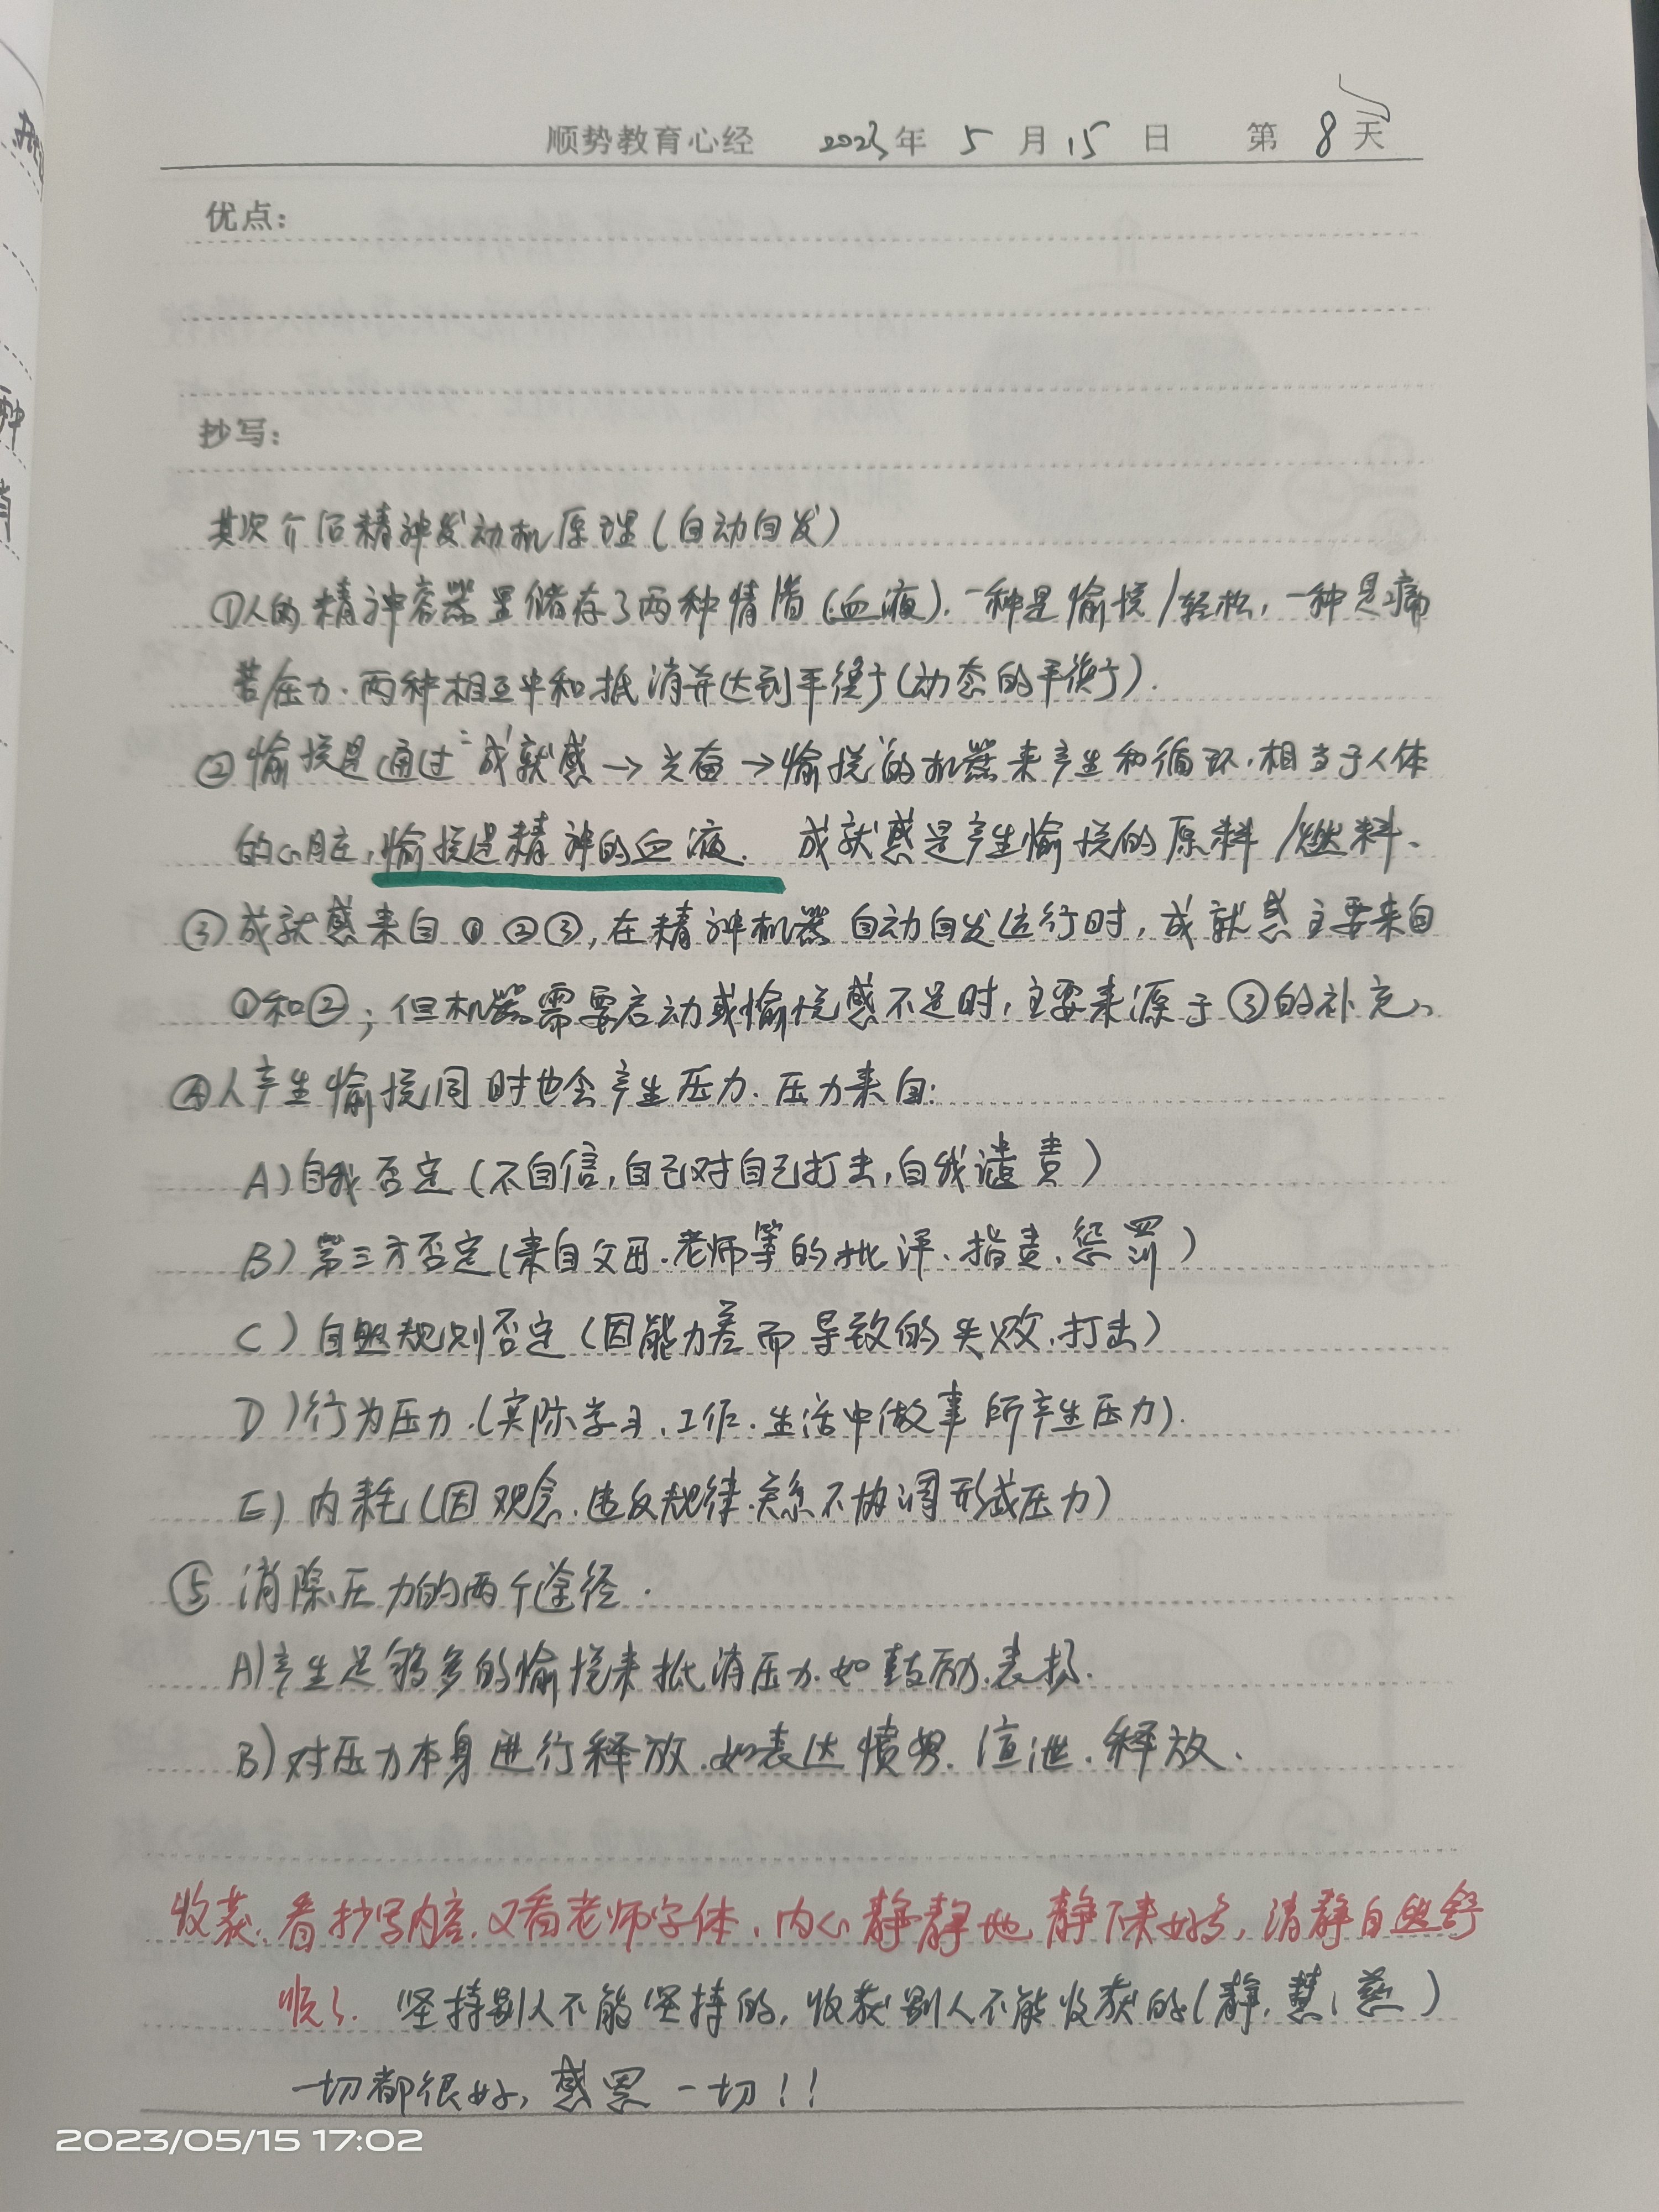 顺势教育心经 2023年 5 月 15 日 第 8 天
优点：
抄写：
其次介绍精神发动机原理（自动自发）
①人的精神容器里储存了两种情绪（血液），一种是愉悦/轻松，一种是痛
苦/压力．两种相互中和抵消并达到平衡（动态的平衡）．
②愉悦是通过“成就感→兴奋→愉悦”的机器来产生和循环，相当于人体
的心脏，愉悦是精神的血液． 成就感是产生愉悦的原料/燃料、
③成就感来自①②③，在精神机器自动自发运行时，成就感主要来自
①和②；但机器需要启动或愉悦感不足时，主要来源于③的补充、
④人产生愉悦同时也会产生压力．压力来自：
A）自我否定（不自信，自己对自己打击，自我谴责）
B）第三方否定（来自父母．老师等的批评、指责、惩罚）
C）自然规则否定（因能力差而导致的失败、打击）
D）行为压力．（实际学习、工作．生活中做事所产生压力）．
E）内耗（因观念．违反规律．关系不协调形成压力）
⑤消除压力的两个途径．
A）产生足够多的愉悦来抵消压力．如鼓励．表扬．
B）对压力本身进行释放．如表达愤怒．宣泄．释放、
收获．看抄写内容．又看老师字体．内心静静地静下来好多，清静自然舒
顺了． 坚持别人不能坚持的，收获别人不能收获的（静，慧，慈）
一切都很好，感恩一切！！
2023/05/15 17:02